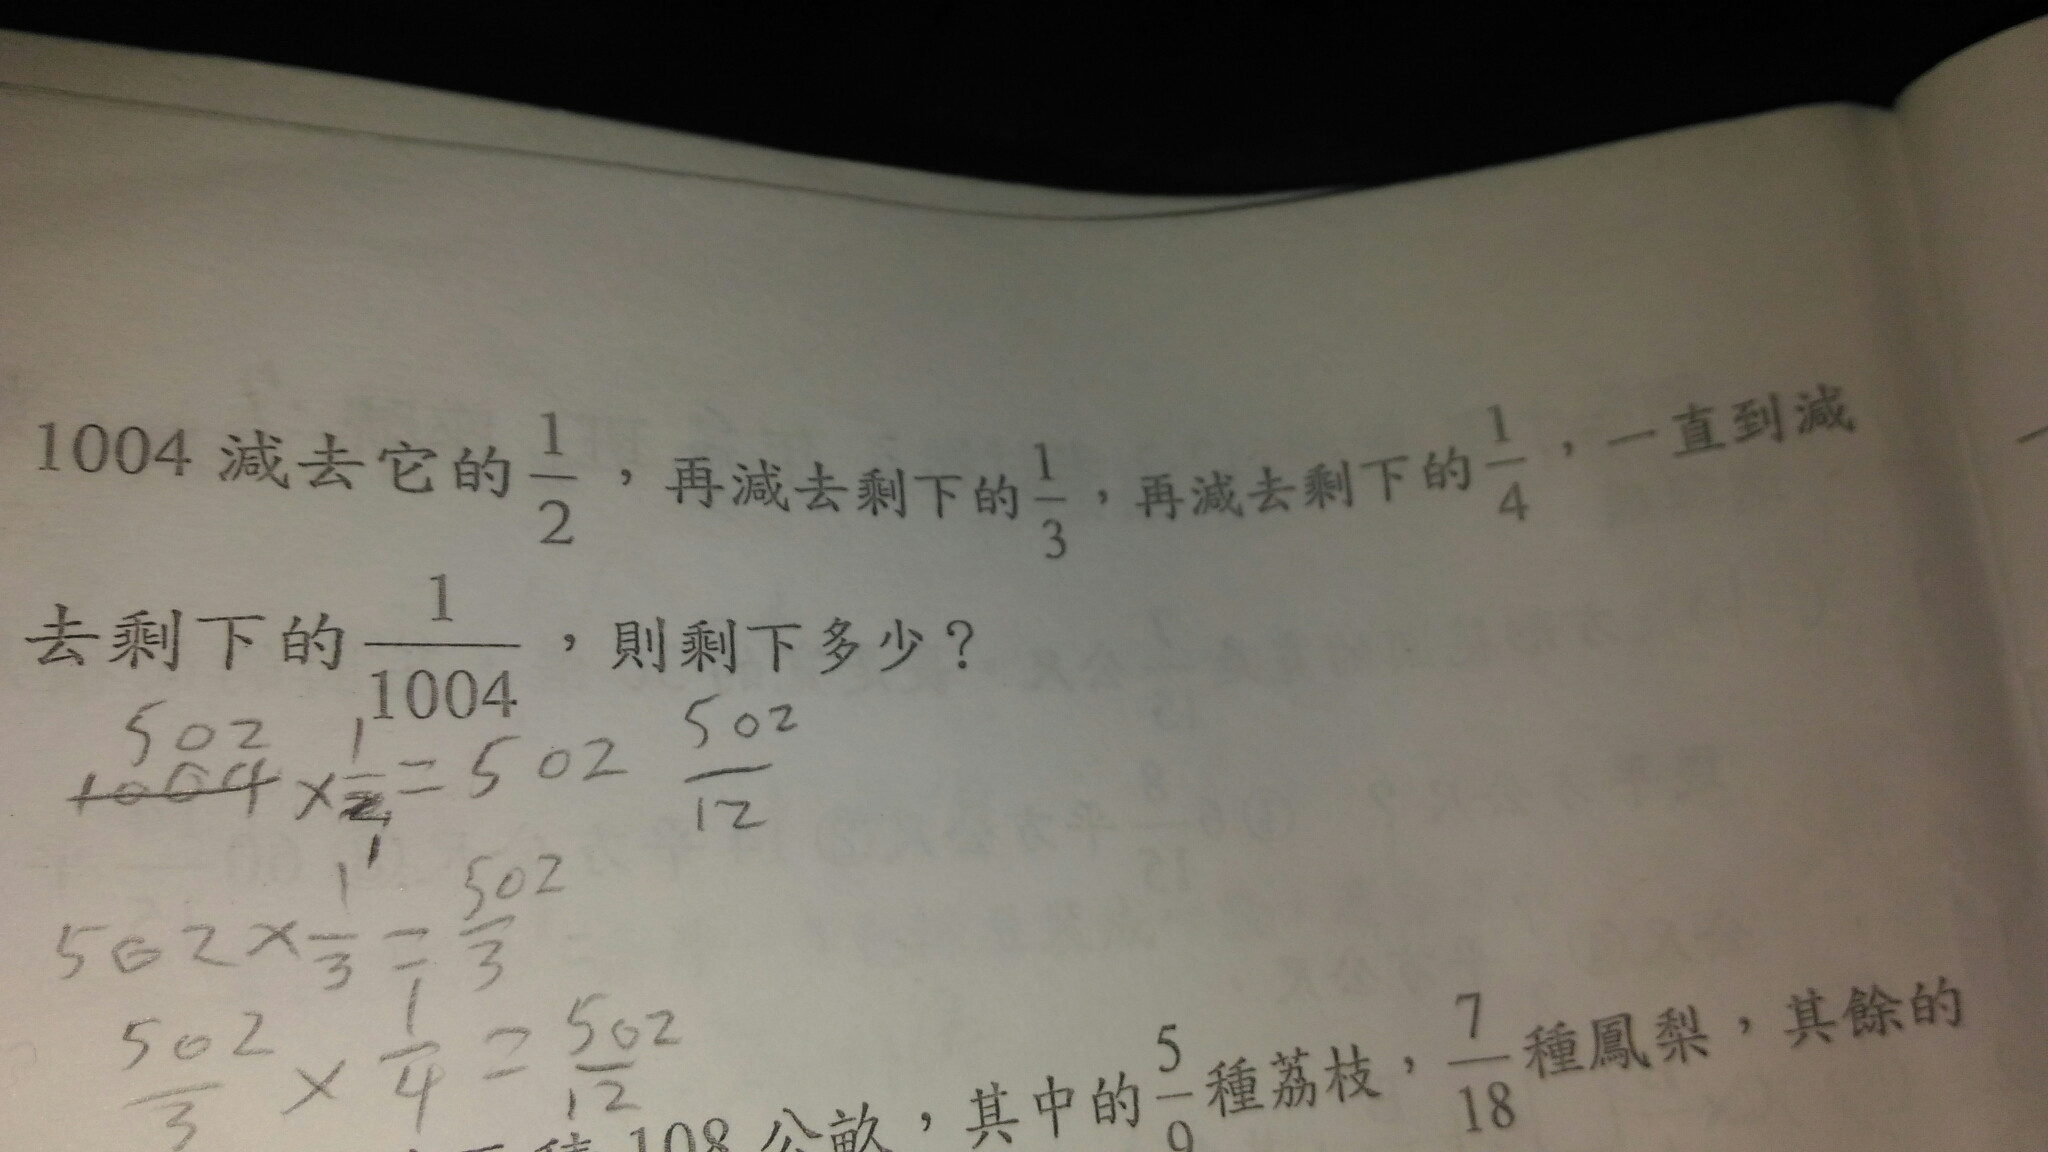 1004 減去它的 1/2，再減去剩下的 1/3，再減去剩下的 1/4，一直到減
去剩下的 1/1004，則剩下多少？
502
1004 × 1/2 = 502 502/12
1
502 × 1/3 = 502/3
502/3 × 1/4 = 502/12
108 公畝，其中的 5/9 種荔枝，7/18 種鳳梨，其餘的